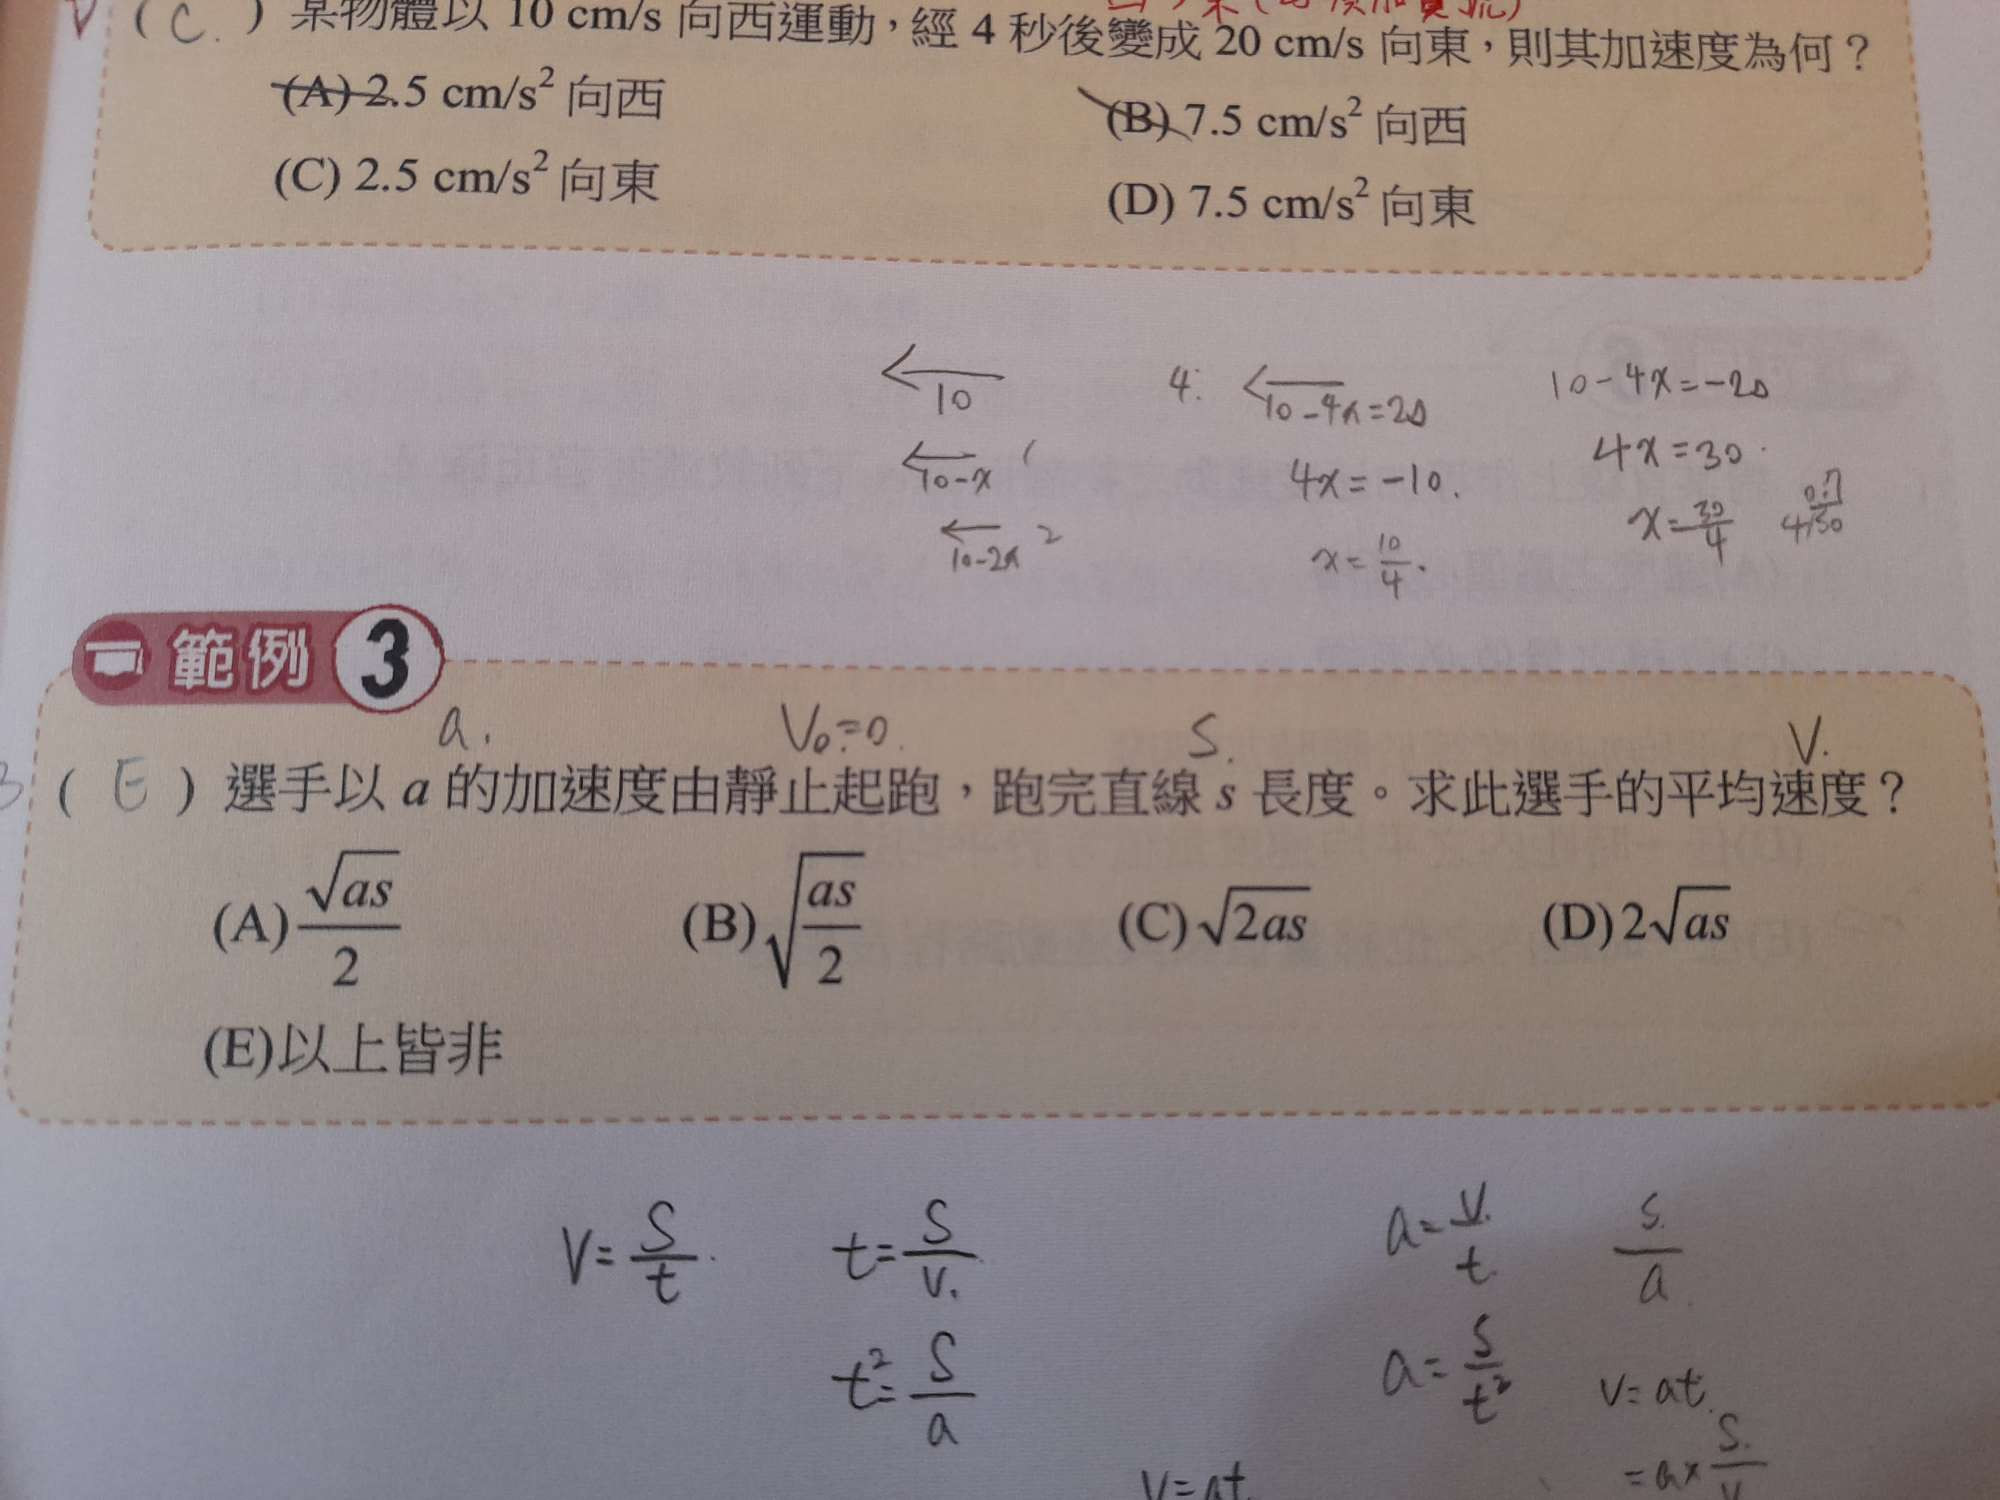 ( C. ) 某物體以 10 cm/s 向西運動，經 4 秒後變成 20 cm/s 向東，則其加速度為何？
(A) 2.5 cm/s² 向西 (B) 7.5 cm/s² 向西
(C) 2.5 cm/s² 向東 (D) 7.5 cm/s² 向東
10
10-x
10-2x 2
4. 10-4x=20
4x=-10.
x=10/4.
10-4x=-20
4x=30.
x=30/4
範例 3
a. V₀=0. S. V.
( E ) 選手以 a 的加速度由靜止起跑，跑完直線 s 長度。求此選手的平均速度？
(A) √as/2 (B) √(as/2) (C) √2as (D) 2√as
(E)以上皆非
V=S/t. t=S/V. a=V./t. S./a.
t²=S/a a=S/t² V=at.
V=at. =a×S./V